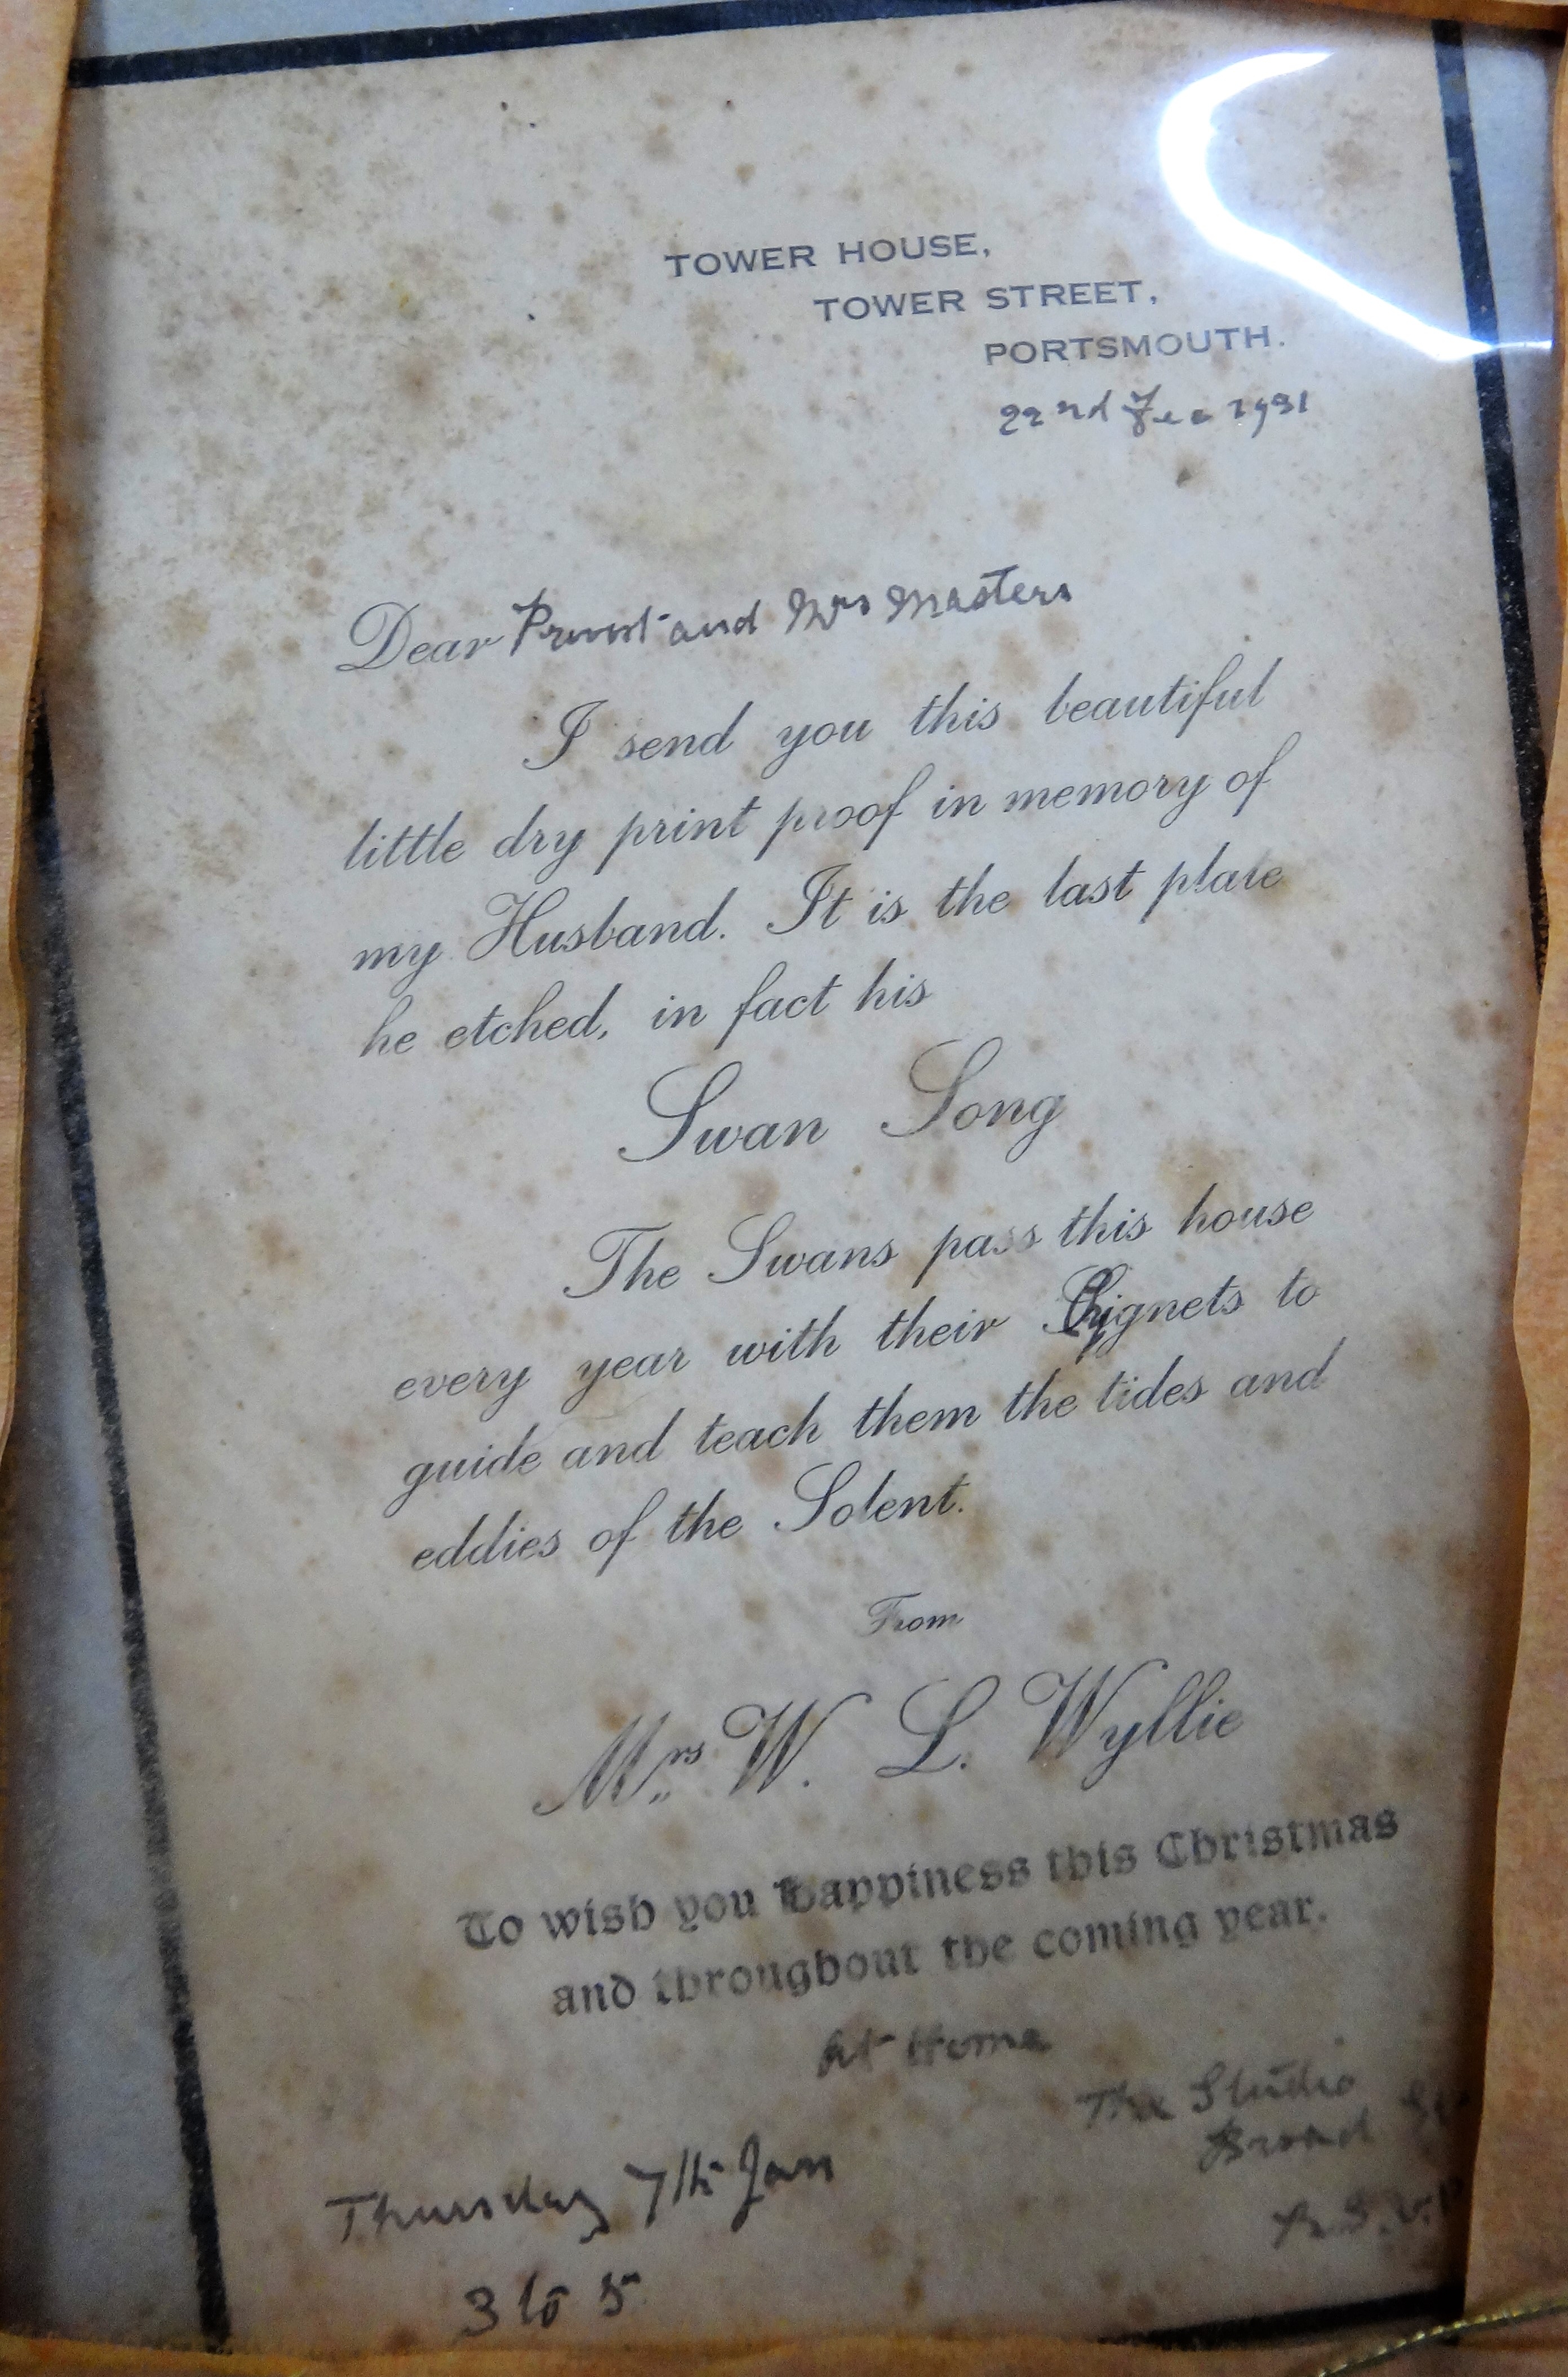 TOWER HOUSE,
TOWER STREET,
PORTSMOUTH.
22nd Dec 1931
Dear Provost and Mrs Masters
I send you this beautiful
little dry print proof in memory of
my Husband. It is the last plate
he etched, in fact his
Swan Song
The Swans pass this house
every year with their Cygnets to
guide and teach them the tides and
eddies of the Solent.
From
Mrs. W. L. Wyllie
To wish you happiness this Christmas
and throughout the coming year.
At Home
The Studio
Broad St
Thursday 7th Jan
R.S.V.P
3 to 5